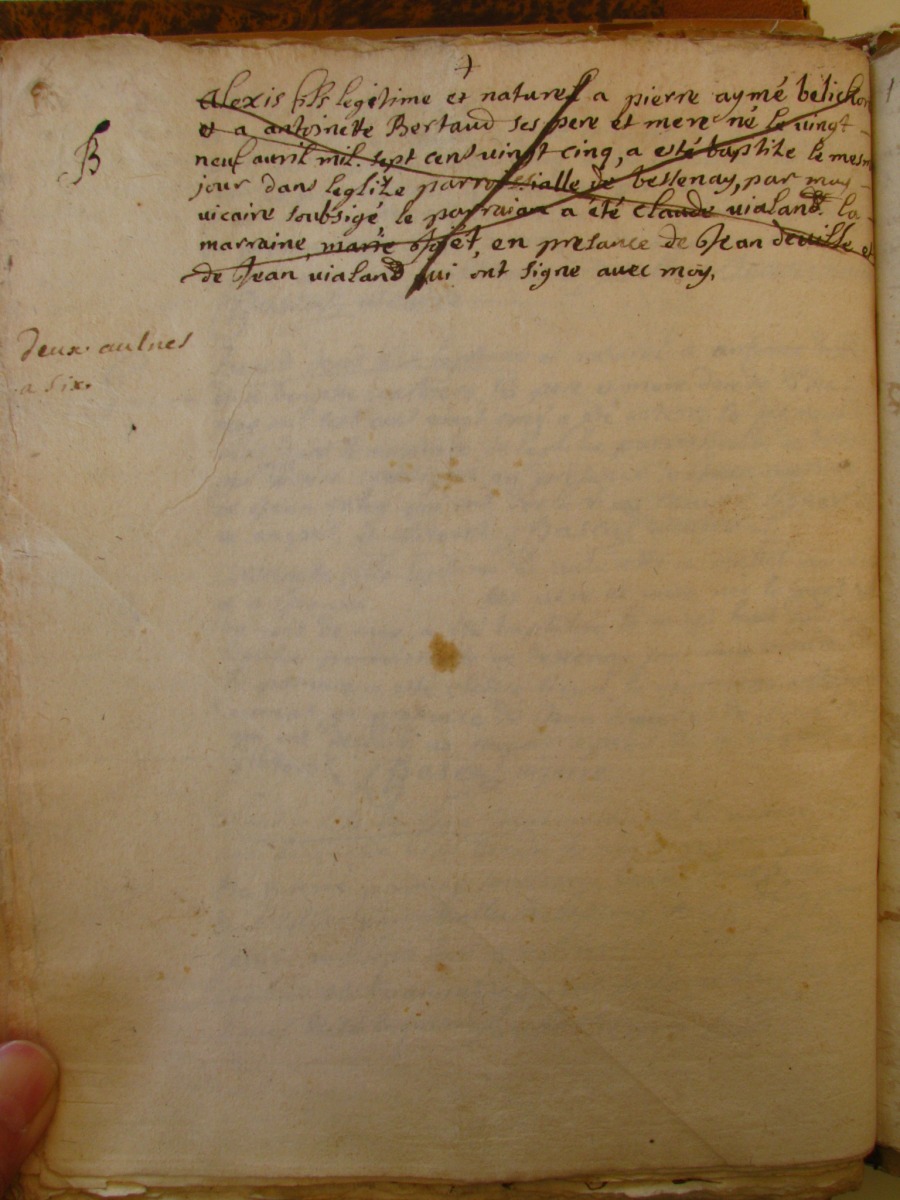 B
Alexis fils legitime et naturel a pierre aymé belichon
et a antoinette Bertaud ses pere et mere né le vingt
neuf avril mil. sept cens vingt cinq, a esté baptize le mesm
jour dans leglize parroissialle de bessenay, par moy
vicaire soubsigé, le parraian a été claude vialand. la
marraine, marie, en presance de Jean deville et
de Jean vialand qui ont signe avec moy,
deux aulnes
a six.